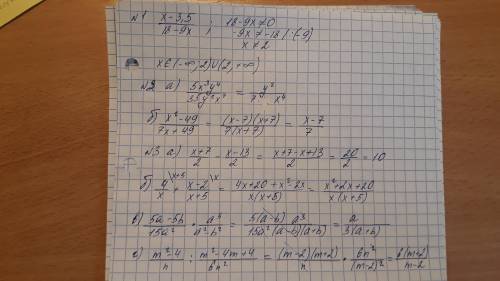 №1 (x-3,5)/(18-9x) ; 18-9x≠0
-9x≠-18 /:(-9)
x≠2
x∈(-∞,2)∪(2,+∞)
№2 a) 5x³y⁴/35y²x⁷ = y²/7x⁴
б) (x²-49)/(7x+49) = (x-7)(x+7)/7(x+7) = (x-7)/7
№3 a) (x+7)/2 - (x-13)/2 = (x+7-x+13)/2 = 20/2 = 10
б) 4/x \x+5 + (x-2)/(x+5) \x = (4x+20+x²-2x)/x(x+5) = (x²+2x+20)/x(x+5)
в) (5a-5b)/15a² · a³/(a²-b²) = 5(a-b) a³/15a²(a-b)(a+b) = a/3(a+b)
г) (m²-4)/n : (m²-4m+4)/6n² = (m-2)(m+2)/n · 6n²/(m-2)² = 6(m+2)/(m-2)